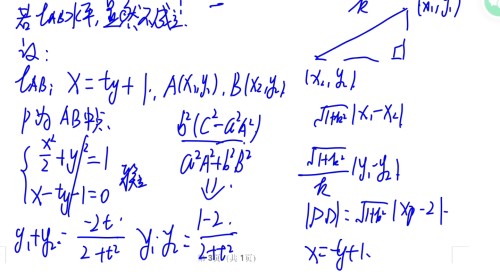 若lAB水平,显然不成立.
设:
lAB: x=ty+1., A(x₁,y₁), B(x₂,y₂)
P为AB中点.
{ x²/2+y²=1
x-ty-1=0 联立
y₁+y₂=-2t/(2+t²) y₁·y₂=(1-2)/(2+t²)
b²(C²-a²A²)/(a²A²+b²B²)
⇓
k (x₁,y₁)
(x₂,y₂)
√(1+k²)|x₁-x₂|
√(1+k²)/k |y₁-y₂|
|PD|=√(1+k²)|xp-2|
x=-ty+1.
第1页(共1页)